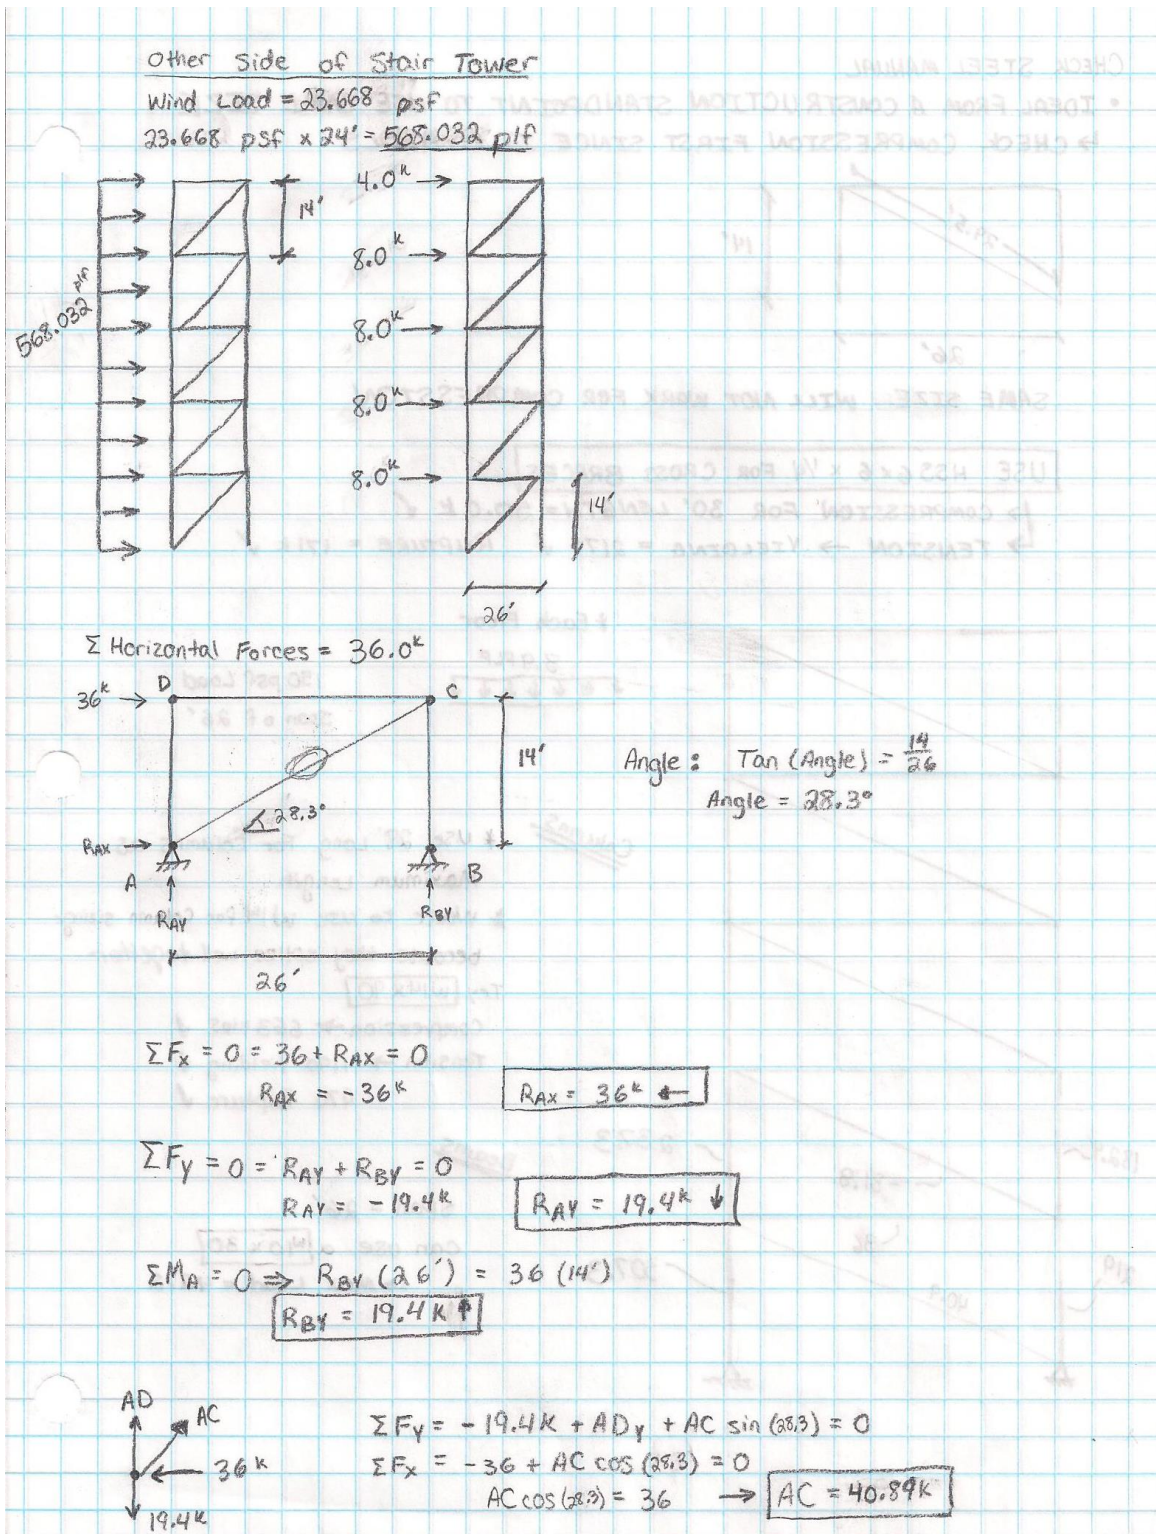 Other Side of Stair Tower
Wind Load = 23.668 psf
23.668 psf x 24' = 568.032 plf
568.032 plf
14'
4.0k
8.0k
8.0k
8.0k
8.0k
14'
26'
Σ Horizontal Forces = 36.0k
36k
D
C
14'
28.3°
RAX
A
B
RAY
RBY
26'
Angle: Tan (Angle) = 14/26
Angle = 28.3°
ΣFx = 0 = 36 + RAX = 0
RAX = -36k
RAX = 36k ←
ΣFy = 0 = RAY + RBY = 0
RAY = -19.4k
RAY = 19.4k ↓
ΣMA = 0 ⇒ RBY (26') = 36 (14')
RBY = 19.4k ↑
AD
AC
36k
19.4k
ΣFy = -19.4k + ADy + AC sin (28.3) = 0
ΣFx = -36 + AC cos (28.3) = 0
AC cos (28.3) = 36 → AC = 40.89k